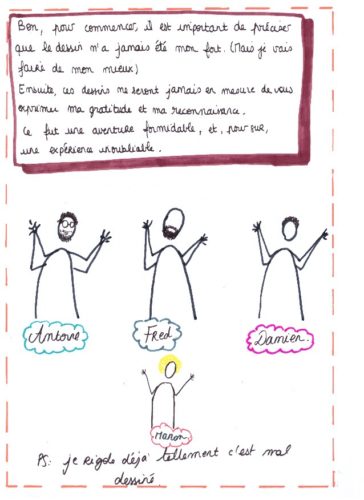 Bon, pour commencer, il est important de préciser
que le dessin n'a jamais été mon fort. (Mais je vais
faire de mon mieux)
Ensuite, ces dessins ne seront jamais en mesure de vous
exprimer ma gratitude et ma reconnaissance.
Ce fut une aventure formidable, et, pour sur,
une expérience inoubliable.
Antoine
Fred
Damien
Manon
PS: je rigole déjà tellement c'est mal
dessiné